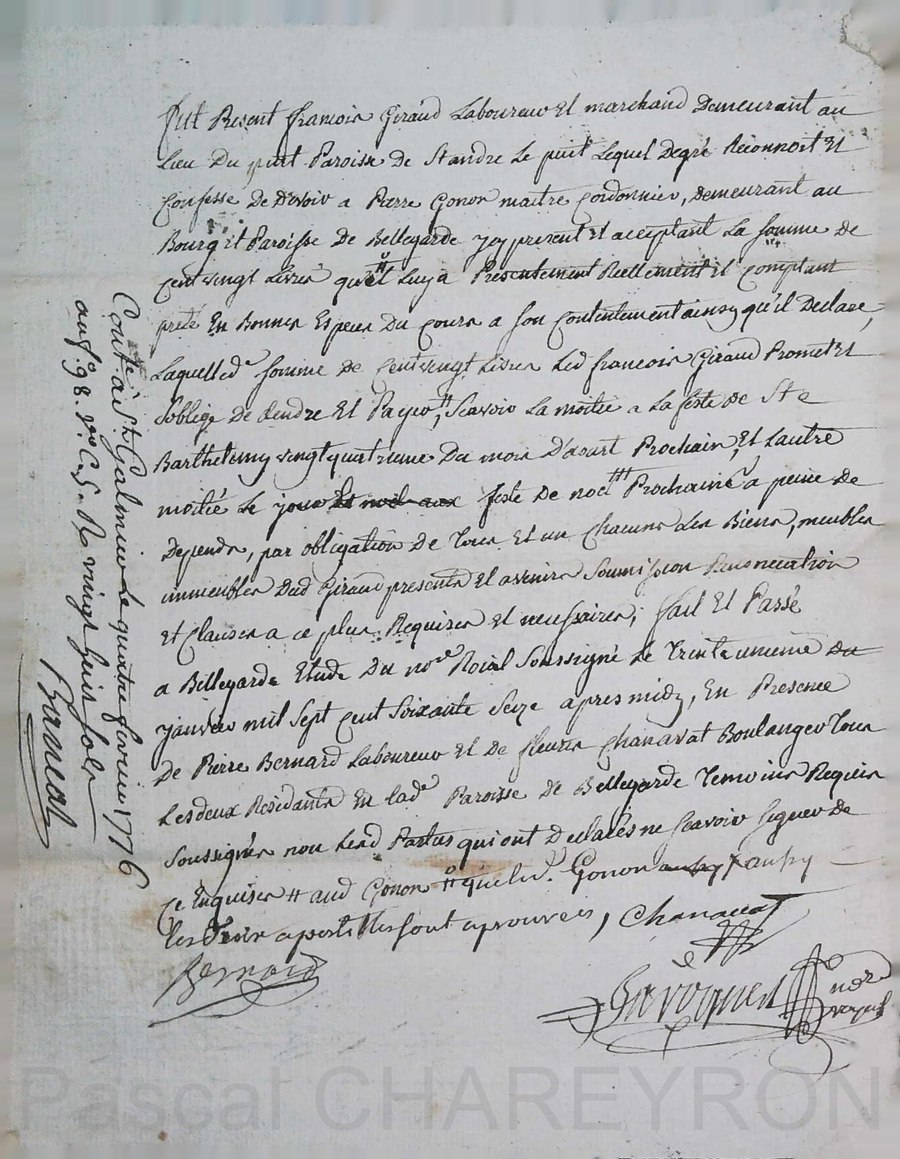 fut Present francois Giraud Laboureur Et marchand Demeurant au
Lieu Du puit Paroisse de St andre Le puit Lequel Degré Reconnoit Et
Confesse De Devoir a Pierre Gonon maitre Cordonnier, Demeurant au
Bourg Et Paroisse De Bellegarde ycy present Et acceptant La Somme De
Cent vingt Livres qu'il Luy a Presentement Reellement Et Comptant
preté En Bonnes Especes Du Cours a Son Contentement ainsy qu'il Declare,
Laquelle de Somme De Cent vingt Livres Led francois Giraud Promet Et
S'oblige De Rendre Et Payer # Scavoir La moitié a La feste de Ste
Barthelemy vingt quatrieme Du mois D'aoust Prochain Et L'autre
moitié Le jour feste De Prochaine a peine De
Depends, par obligation De Tous Et un Chacuns Les Biens, meubles
immeubles Dud Giraud presents Et avenirs Soumission Renonciation
Et Clauses a ce plus Requises Et necessaires; fait Et Passé
a Bellegarde Etude Du nore Roial Soussigné Le Trente unieme Du
janvier mil Sept Cent Soixante Seize apres midy, En Presence
De Pierre Bernard Laboureur Et De fleury Chanavat Boulanger Tous
Les deux Residants En lade Paroisse De Bellegarde Temoins Requis
Soussignés non Lesd Parties qui ont Declarés ne Scavoir Signer De
Ce Enquises # aud Gonon Gonon aussy
Les Trois apostilles sont aprouvées, Chanavat
Bernard
nore
royal
Conté a St Galmier Le quatre fevrier 1776
Vo C. 5. R vingt huit Sols